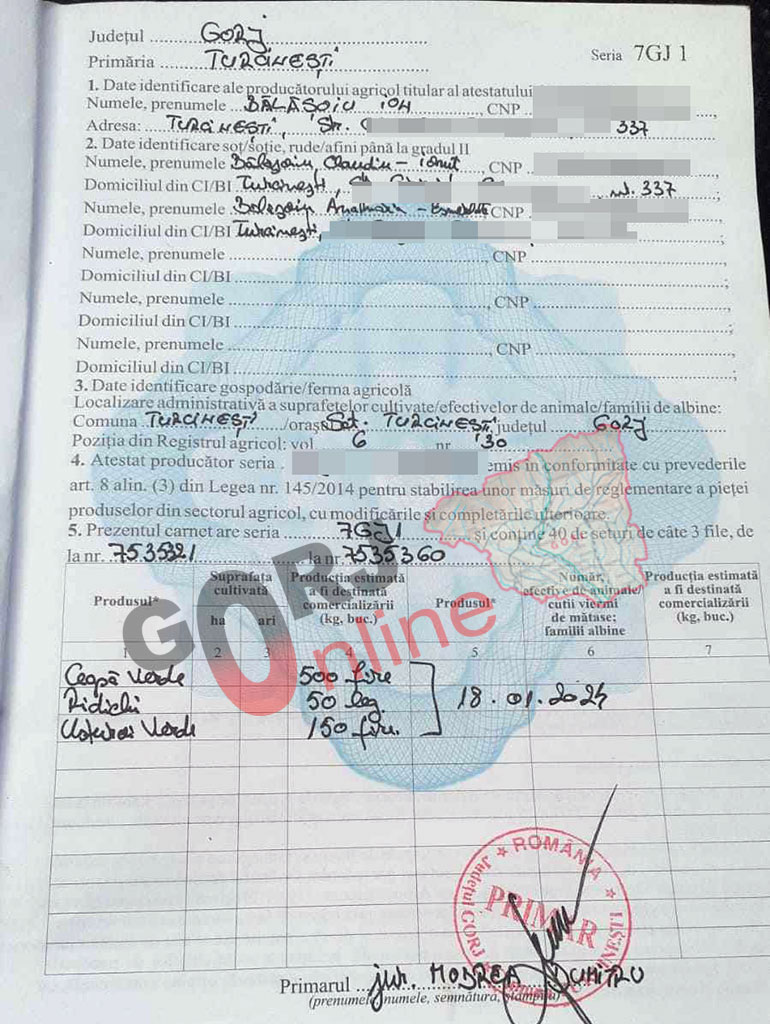 Județul ... GORJ ...
Primăria ... TURCINEȘTI ...
Seria 7GJ 1
1. Date identificare ale producătorului agricol titular al atestatului
Numele, prenumele ... BĂLĂȘOIU ION ..., CNP
Adresa: ... TURCINEȘTI, Str. ... 337
2. Date identificare soț/soție, rude/afini până la gradul II
Numele, prenumele Bălășoiu Claudiu - Ionuț
Domiciliul din CI/BI Turcinești, ... nr. 337
Numele, prenumele Bălășoiu Anamaria - CNP
Domiciliul din CI/BI Turcinești, ...;
Numele, prenumele ... CNP ...
Domiciliul din CI/BI ...;
Numele, prenumele ..., CNP ...
Domiciliul din CI/BI ...;
Numele, prenumele ..., CNP ...
Domiciliul din CI/BI ...;
3. Date identificare gospodărie/ferma agricolă
Localizare administrativă a suprafețelor cultivate/efectivelor de animale/familii de albine:
Comuna TURCINEȘTI /oraș Sat. TURCINEȘTI județul ... GORJ
Poziția din Registrul agricol: vol. 6 nr. 30
4. Atestat producător seria ... emis în conformitate cu prevederile
art. 8 alin. (3) din Legea nr. 145/2014 pentru stabilirea unor măsuri de reglementare a pieței
produselor din sectorul agricol, cu modificările și completările ulterioare.
5. Prezentul carnet are seria ... 7GJ1 ... și conține 40 de seturi de câte 3 file, de
la nr. 7535321 la nr. 7535360
Produsul*
Suprafața cultivată
ha
ari
Producția estimată a fi destinată comercializării (kg, buc.)
Produsul*
Număr, efective de animale/ cutii viermi de mătase; familii albine
Producția estimată a fi destinată comercializării (kg, buc.)
1 2 3 4 5 6 7
Ceapă verde 500 fire
Ridichi 50 leg. 18.01.2024
Usturoi verde 150 fire.
GORJ
Online
ROMÂNIA
Județul GORJ
PRIMAR
Primarul ... jur. MODREA DUMITRU
(prenumele, numele, semnătura, ștampila)